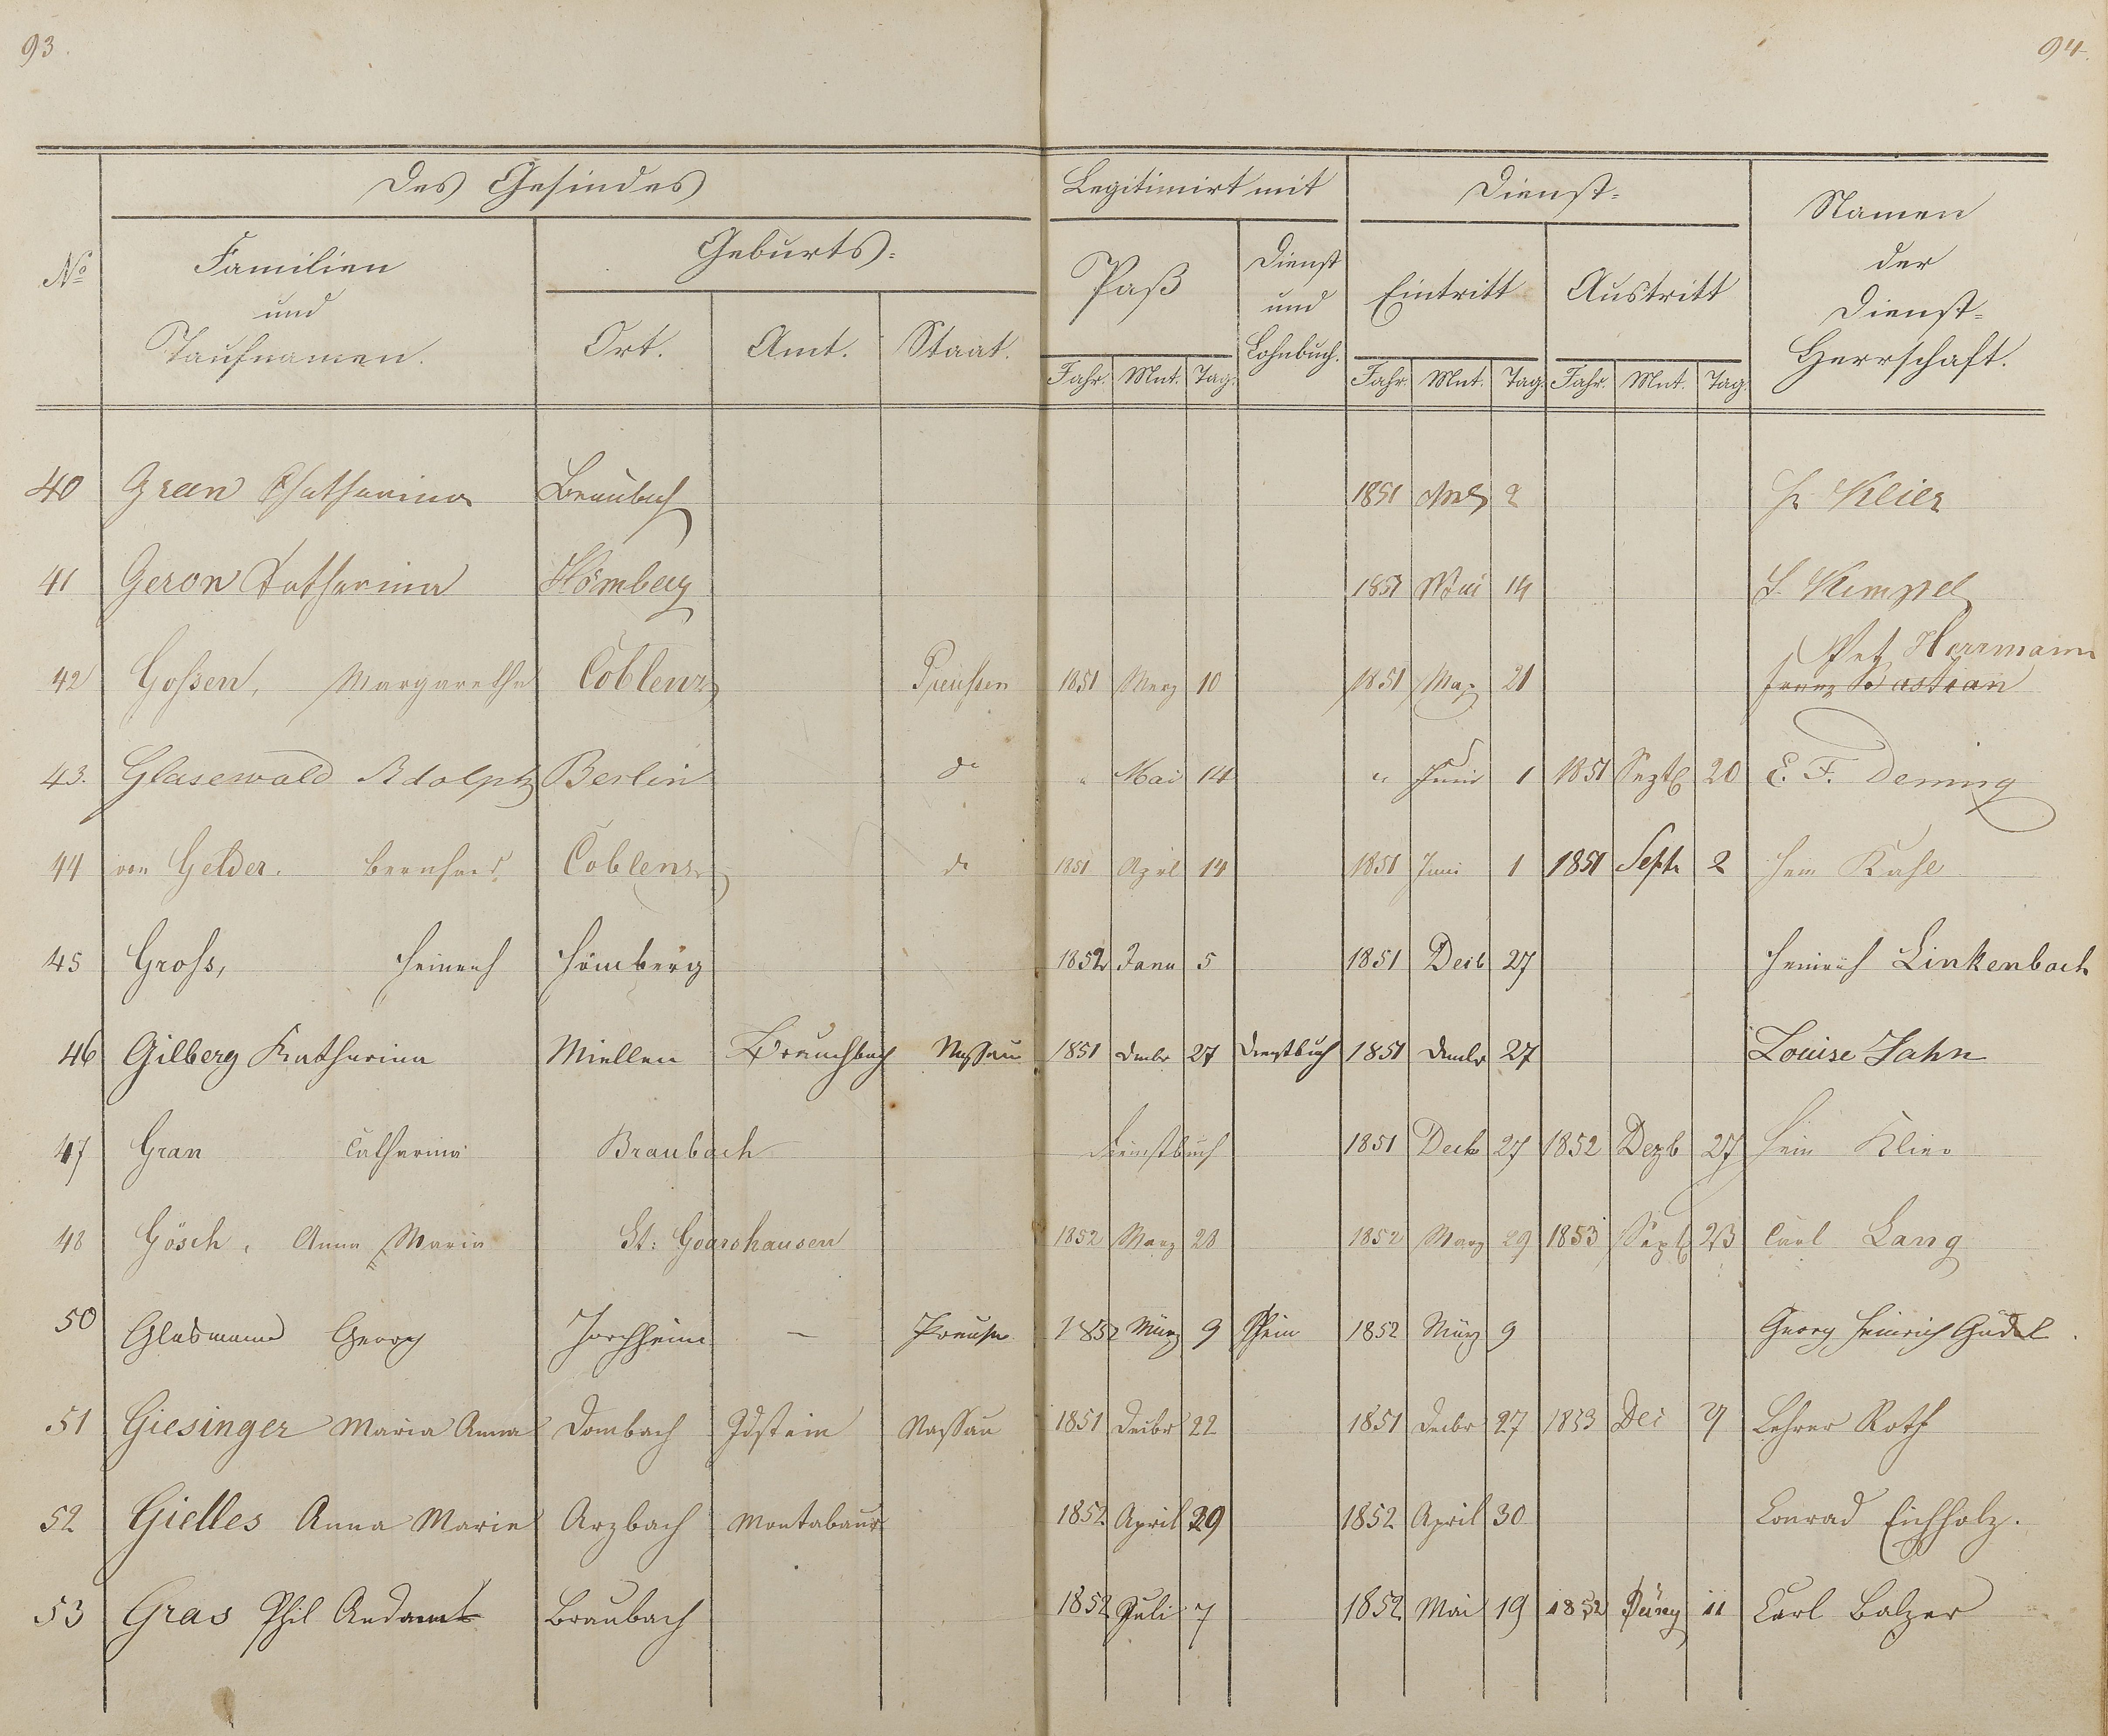 93.
94.
Des Gesindes
Legitimirt mit
Dienst=
Namen
der
Dienst=
Herrschaft.
No
Familien
und
Taufnamen.
Geburts=
Ort. Amt. Staat.
Paß
Dienst
und
Lohnbuch.
Eintritt
Austritt
Jahr. Mnt. Tag.
Jahr. Mnt. Tag. Jahr. Mnt. Tag.
40 Gran Chatharina Braubach 1851 2 Klier
41 Geron Katharina Hömberg 1851 Mai 14 Kimpel
Pet Herrmann
42 Goßen, Margaretha Coblenz Preußen 1851 Merz 10 1851 May 21 Franz Bastian
43. Glasewald Adolph Berlin do " Mai 14 " Juni 1 1851 Septb 20 E. F. Dening
44 von Gelder. Bernhard Coblenz do 1851 April 14 1851 Juni 1 1851 Septr 2 Hein Kahl
45 Groß, Heinrich Hömberg 1852 Janu 5 1851 Decb 27 Heinrich Linkenbach
46 Gilberg Katharina Miellen Braubach Nassau 1851 Decmbr 27 Dienstbuch 1851 Decmbr 27 Louise Jahn
47 Gran Catharina Braubach Dienstbuch 1851 Decb 27 1852 Dezb 27 Hein Klier
48 Gösch, Anna Maria St: Goarshausen 1852 Marz 28 1852 Marz 29 1853 Sept 23 Carl Lang
50 Glasmann Georg Horchheim — Preußen 1852 März 9 1852 März 9 Georg Heinrich Gudel.
51 Giesinger Maria Anna Dombach Idstein Nassau 1851 Decbr 22 1851 Decbr 27 1853 Dec Lehrer Roth
52 Gielles Anna Marie Arzbach Montabaur 1852 April 29 1852 April 30 Conrad Eichholz.
53 Gras Phil Braubach 1852 Juli 7 1852 Mai 19 1852 11 Carl Balzer